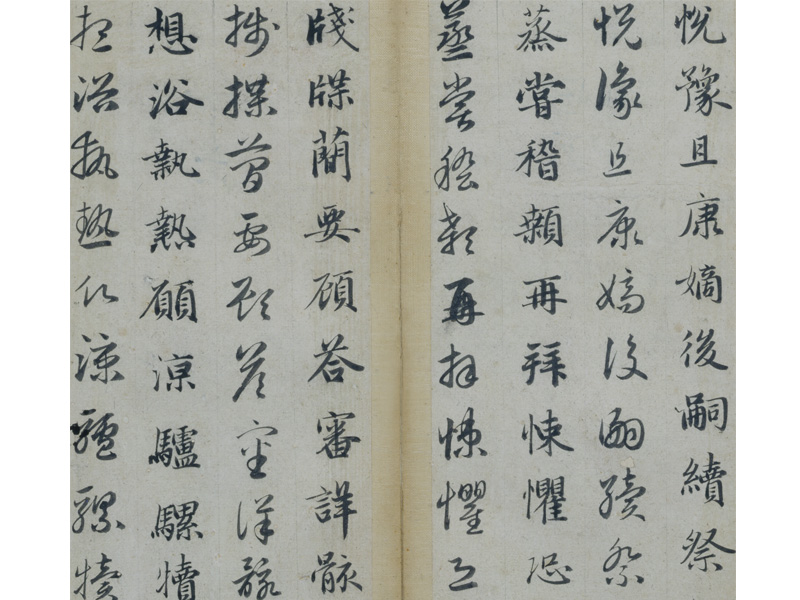 悅豫且康嫡後嗣續祭
悅豫且康嫡後嗣續祭
蒸嘗稽顙再拜悚懼恐
蒸嘗稽顙再拜悚懼恐
牋牒簡要顧答審詳骸
牋牒簡要顧答審詳骸
想浴執熱願涼驢騾犢
想浴執熱願涼驢騾犢